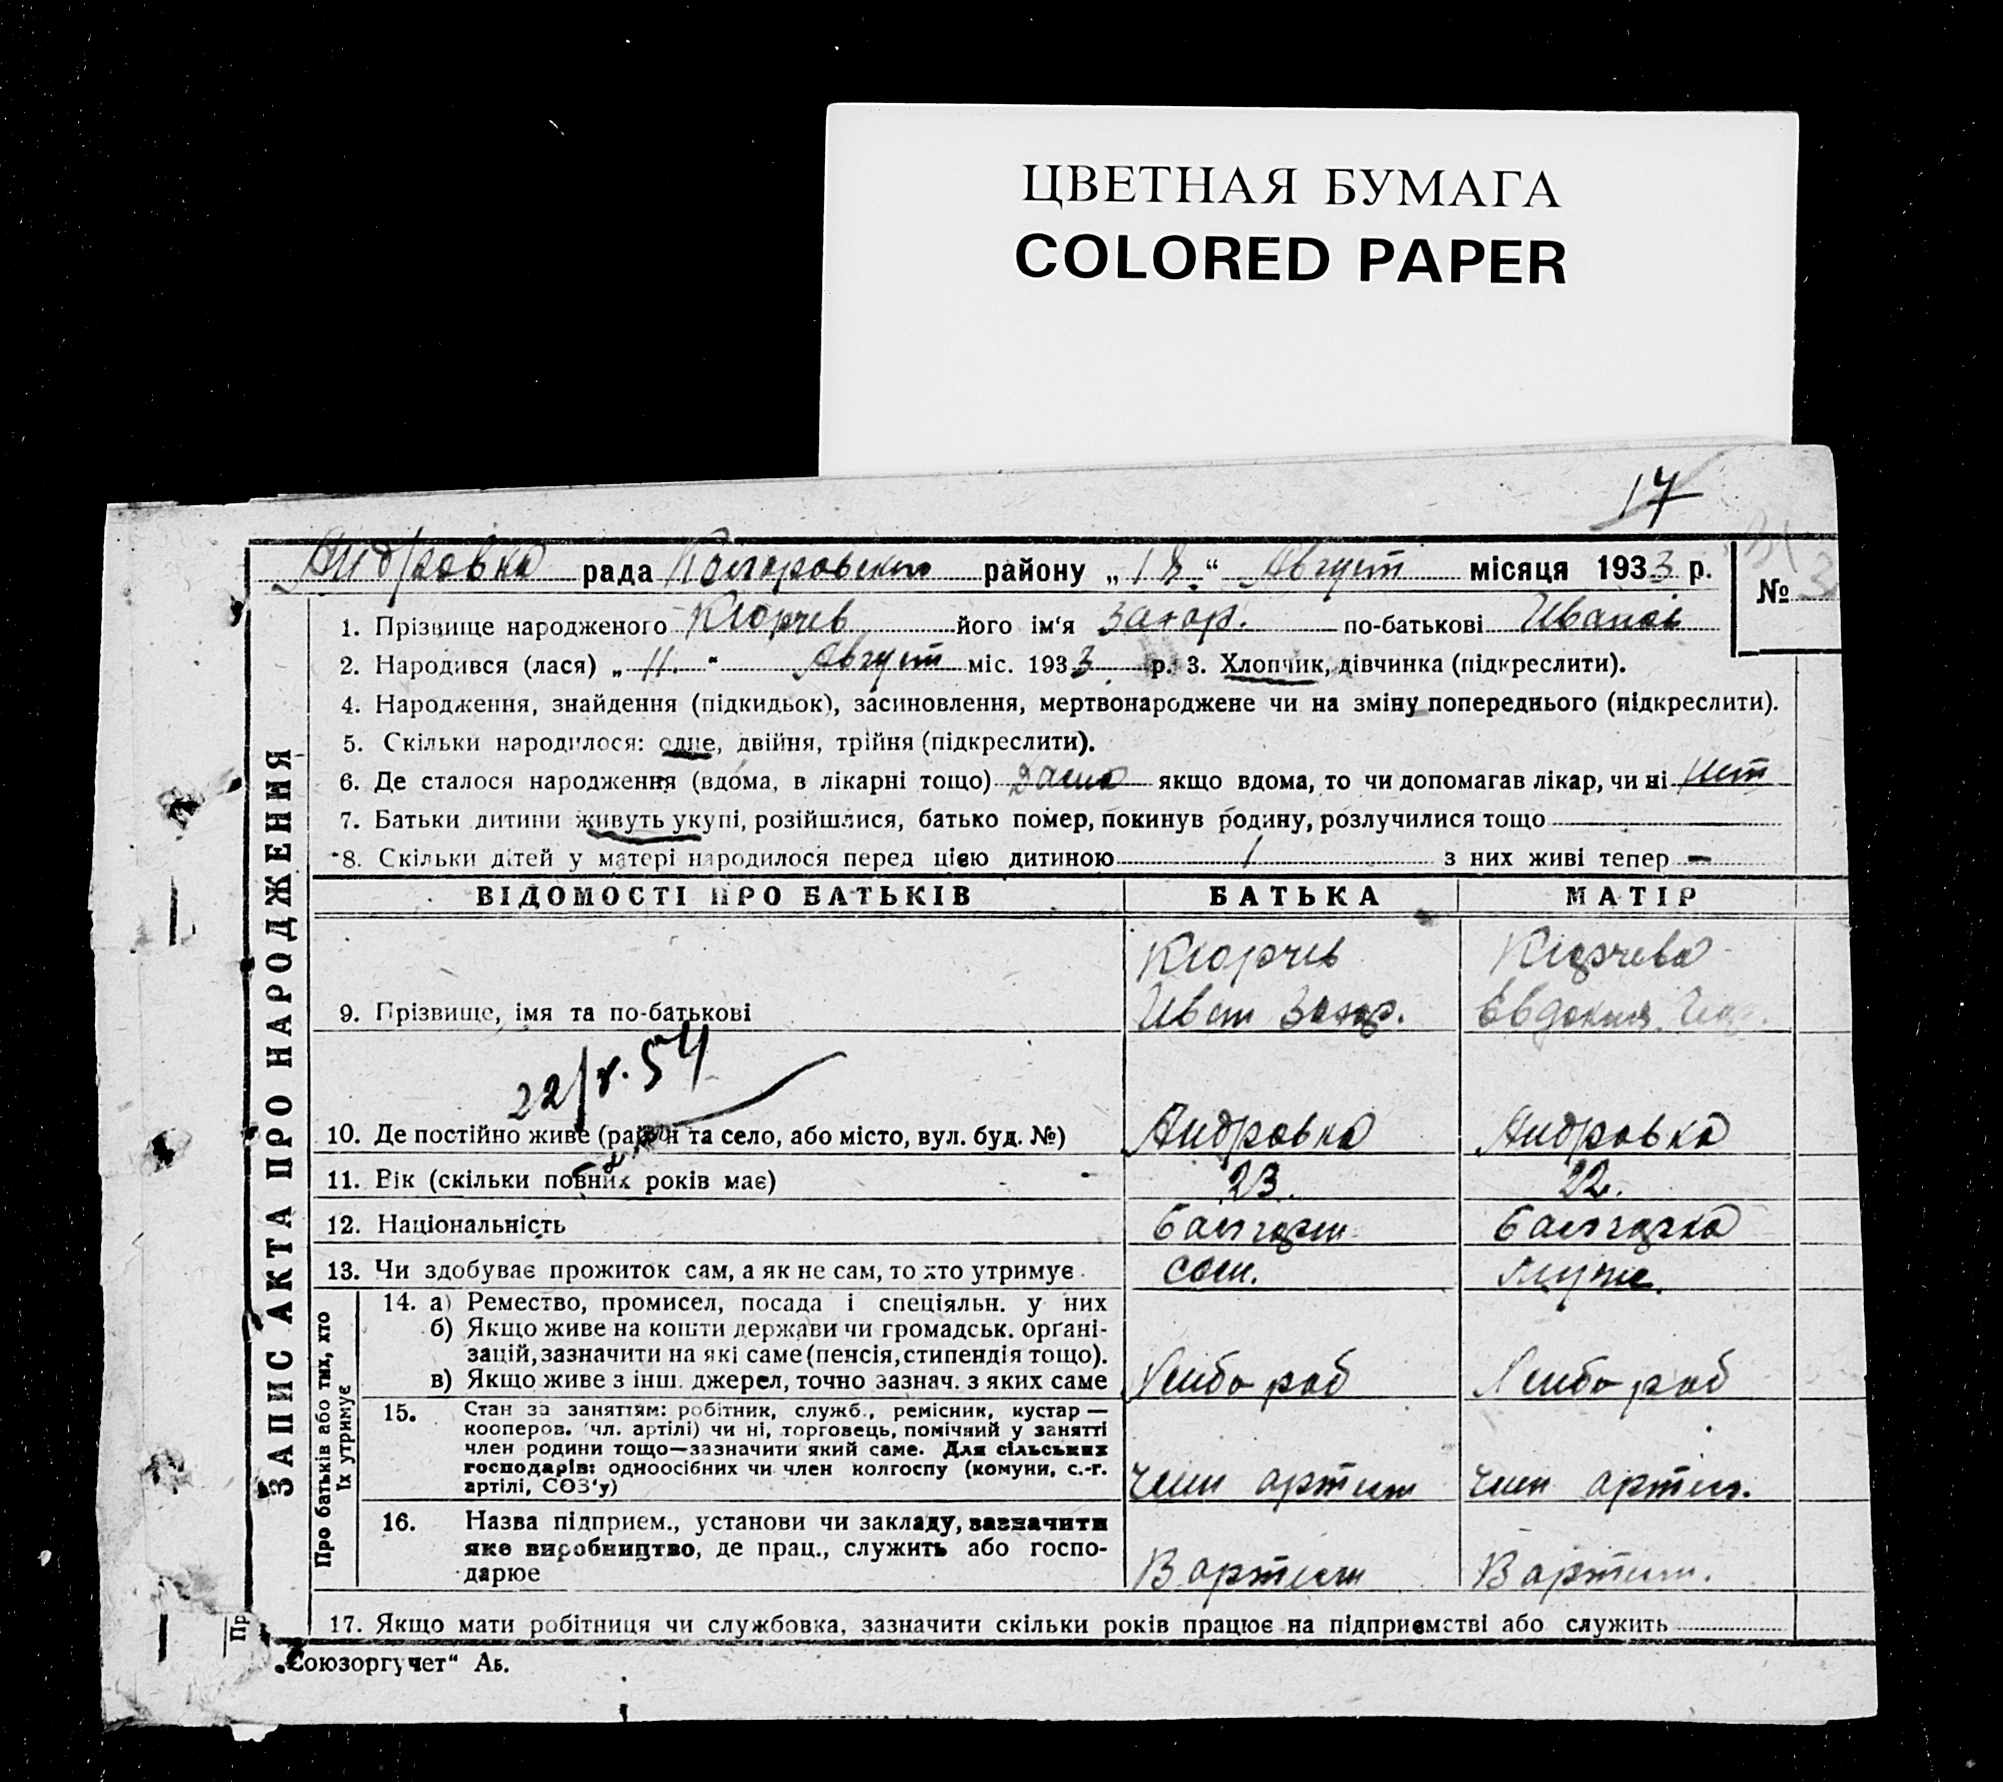 ЦВЕТНАЯ БУМАГА
COLORED PAPER
17
Андровка рада Коларовского району „18“ Август місяця 1933 р.
№ 3
ЗАПИС АКТА ПРО НАРОДЖЕННЯ
1. Прізвище народженого Кюрчев його ім'я Захар. по-батькові Иванов
2. Народився (лася) „11.“ Август міс. 1933 р. 3. Хлопчик, дівчинка (підкреслити).
4. Народження, знайдення (підкидьок), засиновлення, мертвонароджене чи на зміну попереднього (підкреслити).
5. Скільки народилося: одне, двійня, трійня (підкреслити).
6. Де сталося народження (вдома, в лікарні тощо) дома якщо вдома, то чи допомагав лікар, чи ні нет
7. Батьки дитини живуть укупі, розійшлися, батько помер, покинув родину, розлучилися тощо
8. Скільки дітей у матері народилося перед цією дитиною 1 з них живі тепер –
ВІДОМОСТІ ПРО БАТЬКІВ БАТЬКА МАТІР
Кюрчев Кюрчева
9. Прізвище, імя та по-батькові Иван Захар. Евдокия
22/8.54
10. Де постійно живе (район та село, або місто, вул. буд. №) Андровка Андровка
11. Вік (скільки повних років має) 23. 22.
12. Національність болгарин болгарка
13. Чи здобуває прожиток сам, а як не сам, то хто утримує сам. муж.
Про батьків або тих, хто
їх утримує
14. а) Ремество, промисел, посада і спеціяльн. у них
б) Якщо живе на кошти держави чи громадськ. орґані-
зацій, зазначити на які саме (пенсія, стипендія тощо).
в) Якщо живе з інш. джерел, точно зазнач. з яких саме Хлебороб Хлебороб
15. Стан за заняттям: робітник, служб., ремісник, кустар —
кооперов. (чл. артілі) чи ні, торговець, помічний у занятті
член родини тощо—зазначити який саме. Для сільських
господарів: одноосібних чи член колгоспу (комуни, с.-г.
артілі, СОЗ'у) член артели член артел.
16. Назва підприєм., установи чи закладу, зазначити
яке виробництво, де прац., служить або госпо-
дарює В артели В артели.
17. Якщо мати робітниця чи службовка, зазначити скільки років працює на підприємстві або служить
Пр
„Союзоргучет“ Аб.